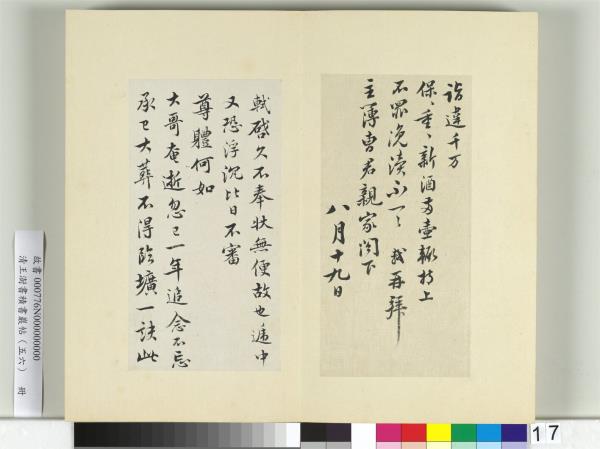 詣違千万
保、重、新酒两壷輙持上
不罪浼渎不一一 我再拜
主簿曹君親家閤下
八月十九日
軾啓久不奉狀無便故也遞中
又恐浮沉比日不審
尊體何如
大哥奄逝忽已一年追念不忘
承已大葬不得臨壙一訣此
故書 000776N00000000
清王澍書積書巖帖（五六） 冊
17